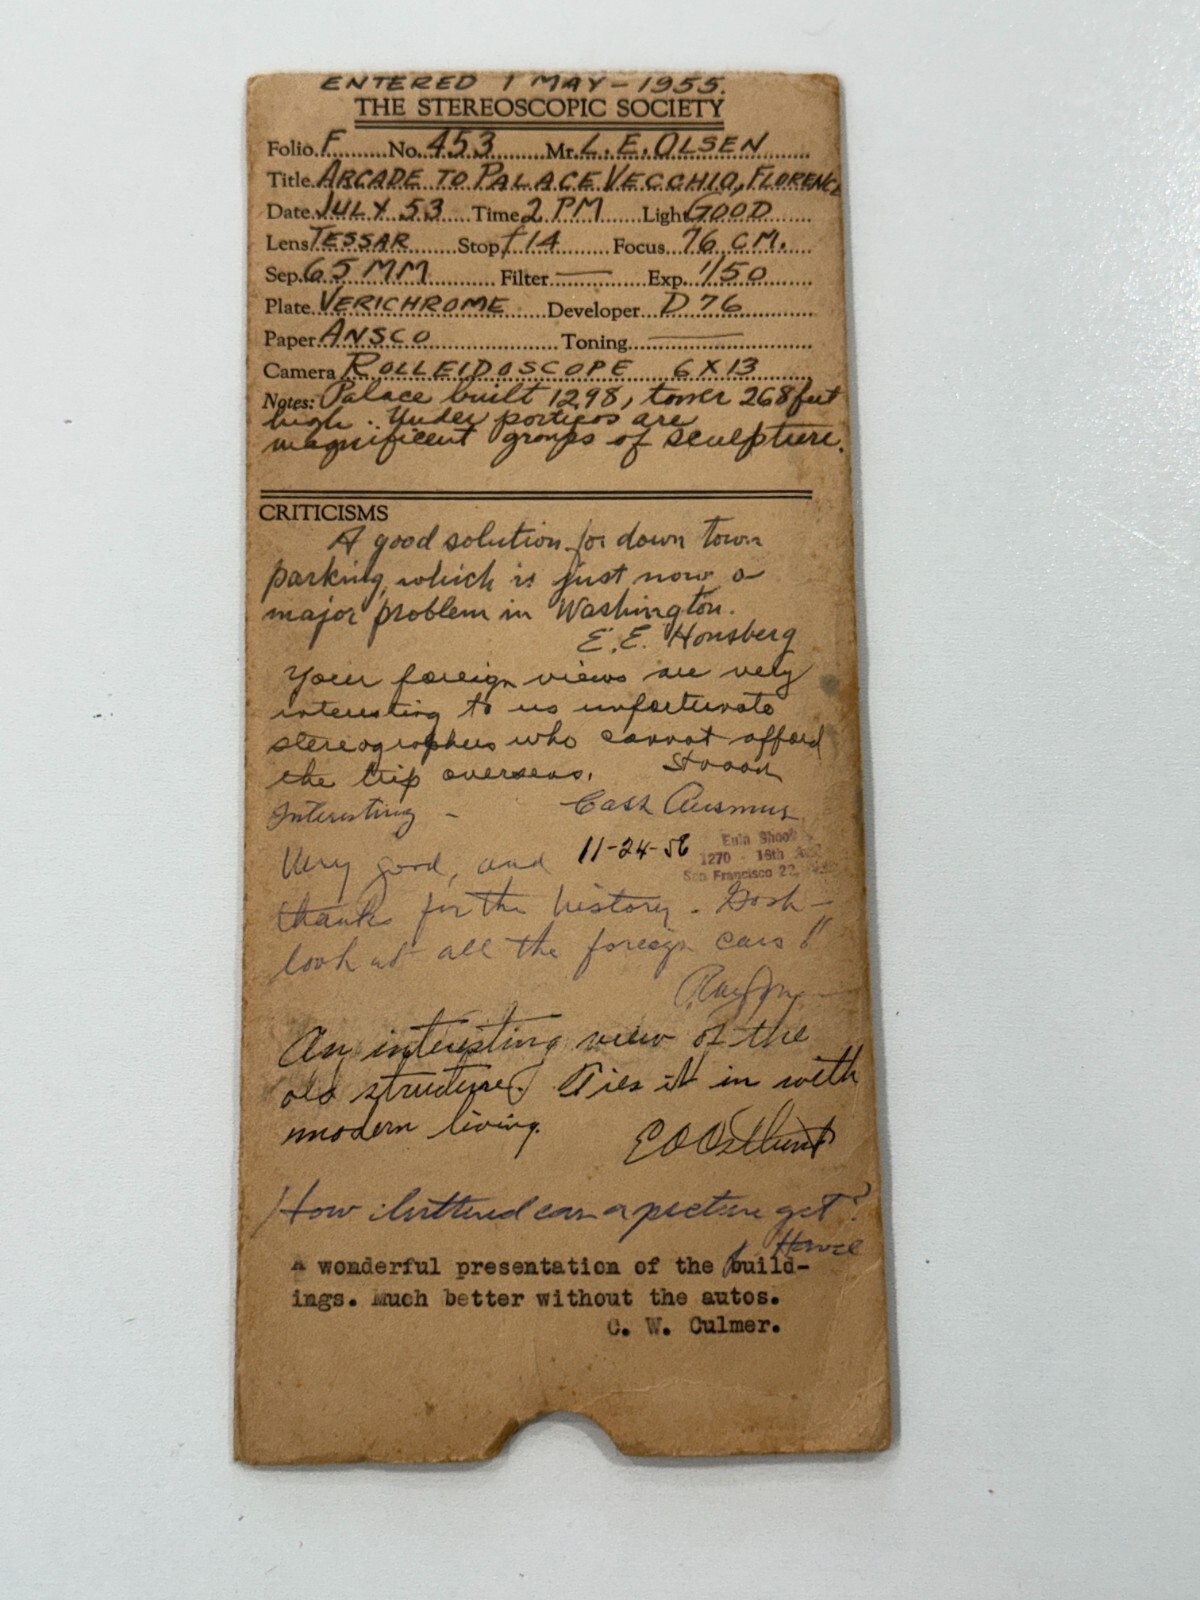 ENTERED 1 MAY-1955.
THE STEREOSCOPIC SOCIETY
Folio F No. 453 Mr. L. E. OLSEN
Title ARCADE TO PALACE VECCHIO, FLORENCE
Date JULY 53 Time 2 PM Light GOOD
Lens TESSAR Stop f 14 Focus 76 CM.
Sep. 65 MM Filter — Exp. 1/50
Plate VERICHROME Developer D 76
Paper ANSCO Toning —
Camera ROLLEIDOSCOPE 6 X 13
Notes: Palace built 1298, tower 268 feet
high.. Under porticos are
magnificent groups of sculpture.
CRITICISMS
A good solution for down town
parking, which is just now a
major problem in Washington.
E. E. Honsberg
Your foreign views are very
interesting to us unfortunate
stereographers who cannot afford
the trip overseas.
Interesting - Cash Ausmus
Very good, and 11-24-56 Eula Shook
1270 - 16th Ave
San Francisco 22,
thanks for the history. Gosh -
look at all the foreign cars!!
An interesting view of the
old structure. Ties it in with
modern living.
How cluttered can a picture get?
A wonderful presentation of the build-
ings. Much better without the autos.
C. W. Culmer.